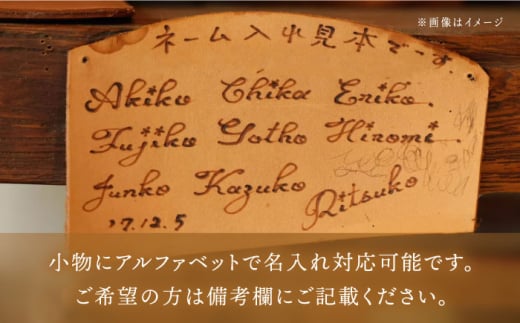 ※画像はイメージ
ネーム入れ見本です.
Akiko Chika Eriko.
Fujiko Gotho Hiromi.
Junko Kazuko Ritsuko
17.12.5
小物にアルファベットで名入れ対応可能です。
ご希望の方は備考欄にご記載ください。